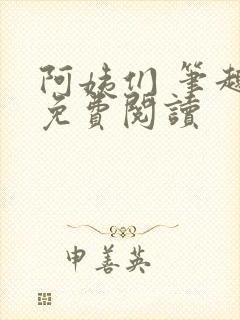 阿姨们 筆趣
免費閱讀
申善英